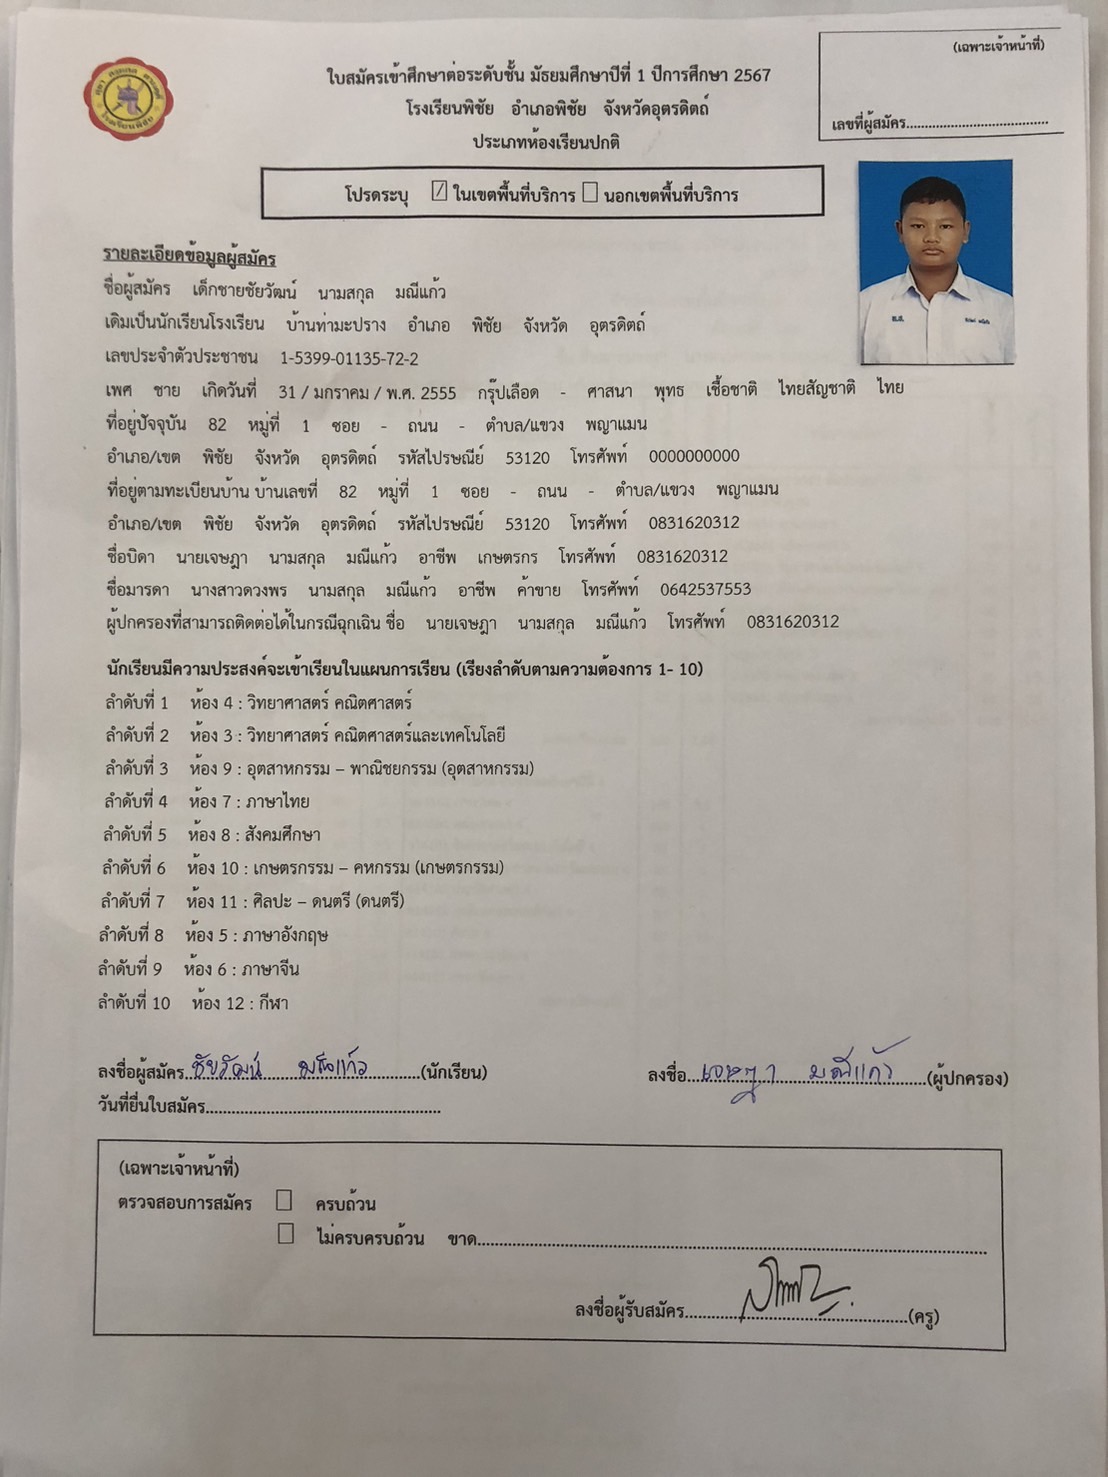 (เฉพาะเจ้าหน้าที่)
เลขที่ผู้สมัคร......................................
ใบสมัครเข้าศึกษาต่อระดับชั้น มัธยมศึกษาปีที่ 1 ปีการศึกษา 2567
โรงเรียนพิชัย อำเภอพิชัย จังหวัดอุตรดิตถ์
ประเภทห้องเรียนปกติ
โปรดระบุ ☑ ในเขตพื้นที่บริการ ☐ นอกเขตพื้นที่บริการ
รายละเอียดข้อมูลผู้สมัคร
ชื่อผู้สมัคร เด็กชายชัยวัฒน์ นามสกุล มณีแก้ว
เดิมเป็นนักเรียนโรงเรียน บ้านท่ามะปราง อำเภอ พิชัย จังหวัด อุตรดิตถ์
เลขประจำตัวประชาชน 1-5399-01135-72-2
เพศ ชาย เกิดวันที่ 31 / มกราคม / พ.ศ. 2555 กรุ๊ปเลือด - ศาสนา พุทธ เชื้อชาติ ไทยสัญชาติ ไทย
ที่อยู่ปัจจุบัน 82 หมู่ที่ 1 ซอย - ถนน - ตำบล/แขวง พญาแมน
อำเภอ/เขต พิชัย จังหวัด อุตรดิตถ์ รหัสไปรษณีย์ 53120 โทรศัพท์ 0000000000
ที่อยู่ตามทะเบียนบ้าน บ้านเลขที่ 82 หมู่ที่ 1 ซอย - ถนน - ตำบล/แขวง พญาแมน
อำเภอ/เขต พิชัย จังหวัด อุตรดิตถ์ รหัสไปรษณีย์ 53120 โทรศัพท์ 0831620312
ชื่อบิดา นายเจษฎา นามสกุล มณีแก้ว อาชีพ เกษตรกร โทรศัพท์ 0831620312
ชื่อมารดา นางสาวดวงพร นามสกุล มณีแก้ว อาชีพ ค้าขาย โทรศัพท์ 0642537553
ผู้ปกครองที่สามารถติดต่อได้ในกรณีฉุกเฉิน ชื่อ นายเจษฎา นามสกุล มณีแก้ว โทรศัพท์ 0831620312
นักเรียนมีความประสงค์จะเข้าเรียนในแผนการเรียน (เรียงลำดับตามความต้องการ 1- 10)
ลำดับที่ 1 ห้อง 4 : วิทยาศาสตร์ คณิตศาสตร์
ลำดับที่ 2 ห้อง 3 : วิทยาศาสตร์ คณิตศาสตร์และเทคโนโลยี
ลำดับที่ 3 ห้อง 9 : อุตสาหกรรม – พาณิชยกรรม (อุตสาหกรรม)
ลำดับที่ 4 ห้อง 7 : ภาษาไทย
ลำดับที่ 5 ห้อง 8 : สังคมศึกษา
ลำดับที่ 6 ห้อง 10 : เกษตรกรรม – คหกรรม (เกษตรกรรม)
ลำดับที่ 7 ห้อง 11 : ศิลปะ – ดนตรี (ดนตรี)
ลำดับที่ 8 ห้อง 5 : ภาษาอังกฤษ
ลำดับที่ 9 ห้อง 6 : ภาษาจีน
ลำดับที่ 10 ห้อง 12 : กีฬา
ลงชื่อผู้สมัคร ชัยวัฒน์ มณีแก้ว (นักเรียน) ลงชื่อ เจษฎา มณีแก้ว (ผู้ปกครอง)
วันที่ยื่นใบสมัคร..................................................
(เฉพาะเจ้าหน้าที่)
ตรวจสอบการสมัคร ☐ ครบถ้วน
☐ ไม่ครบครบถ้วน ขาด..................................................
ลงชื่อผู้รับสมัคร..................................................(ครู)